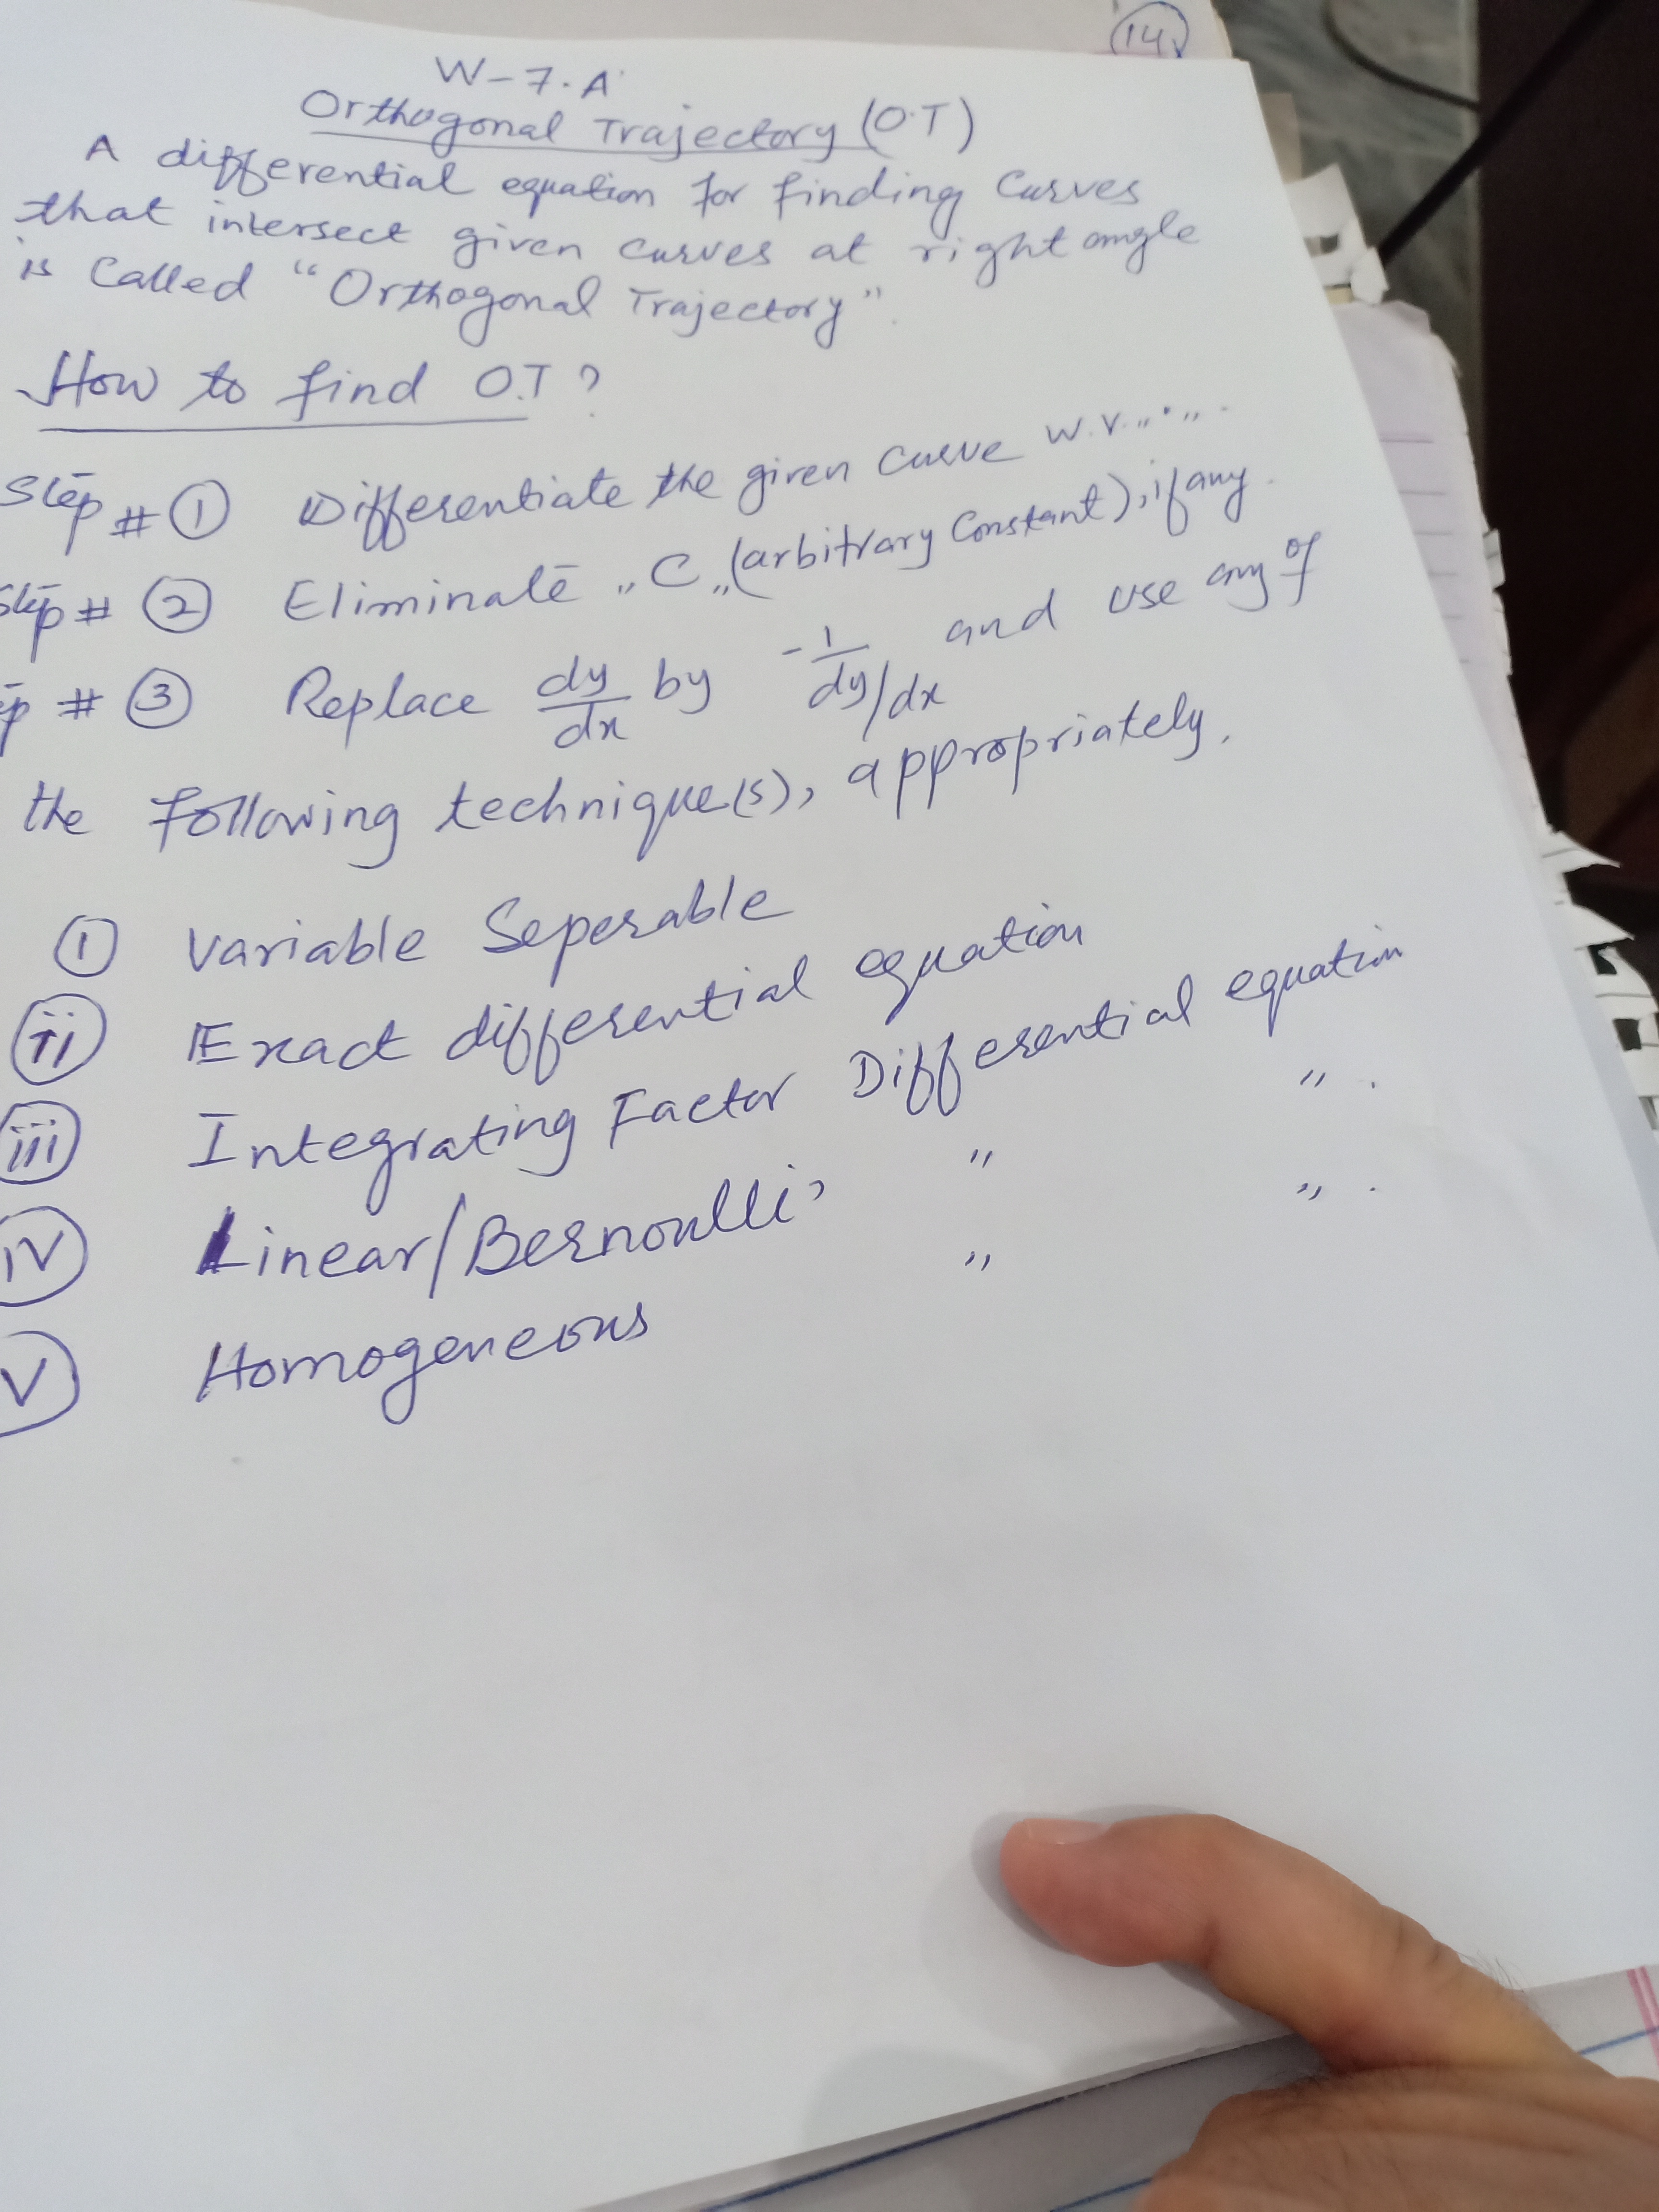 14
W-7.A
Orthogonal Trajectory (O.T)
A differential equation for finding Curves
that intersect given curves at right angle
is Called "Orthogonal Trajectory".
How to find O.T?
Step # ① Differentiate the given Curve
Step # ② Eliminate "C" (arbitrary Constant), if any.
ep # ③ Replace dy/dx by -1/dy/dx and use any of
the following technique(s), appropriately.
① Variable Seperable
ii Exact differential equation
iii Integrating Factor Differential equation
iv Linear/Bernoulli's " " .
v Homogeneous " " .